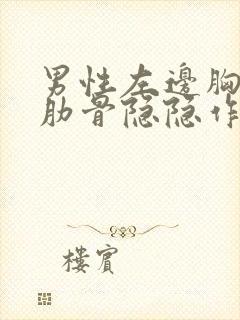 男性左邊胸
肋骨隐隐作
樓賓